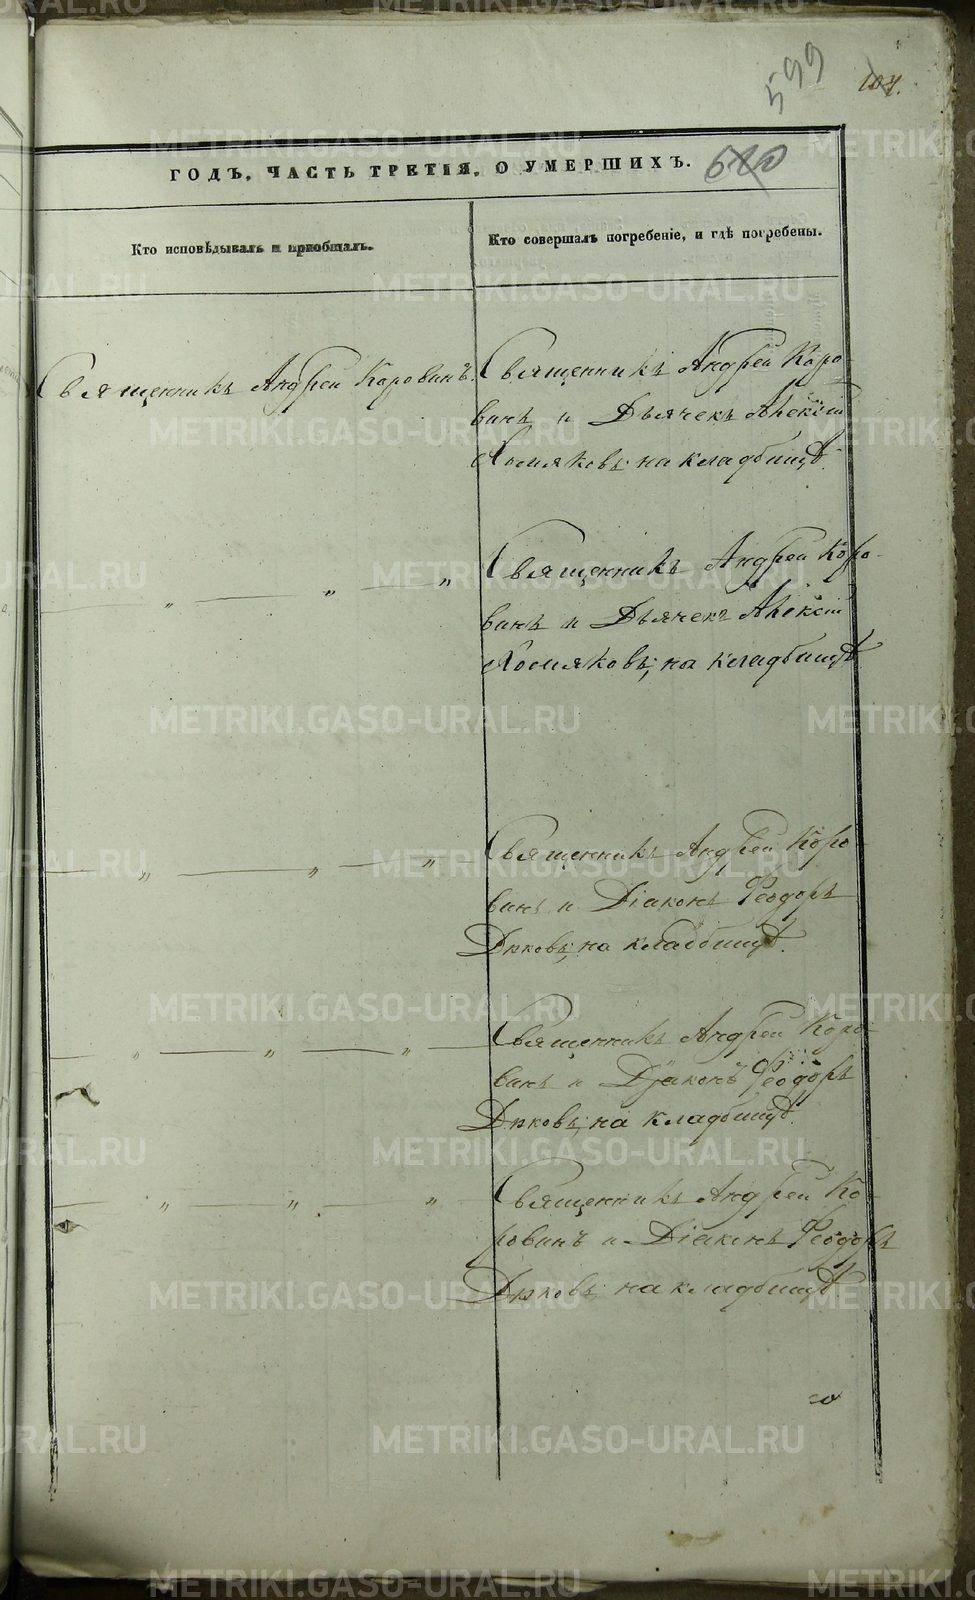 599
104.
ГОДЪ, ЧАСТЬ ТРЕТІЯ, О УМЕРШИХЪ.
Кто исповѣдывалъ и пріобщалъ.
Кто совершалъ погребеніе, и гдѣ погребены.
Священникъ Андрей Коровинъ.
Священникъ Андрей Коро-
винъ и Дьячекъ Алексій
Хомяковъ; на кладбищѣ.
„ „ „
Священникъ Андрей Коро-
винъ и Дьячекъ Алексій
Хомяковъ; на кладбищѣ
„ „ „
Священникъ Андрей Коро-
винъ и Діаконъ Ѳеодоръ
на кладбищѣ.
„ „ „
Священникъ Андрей Коро-
винъ и Діаконъ Ѳеодоръ
на кладбищѣ.
„ „ „
Священникъ Андрей Ко-
ровинъ и Діаконъ Ѳеодоръ
на кладбищѣ
METRIKI.GASO-URAL.RU